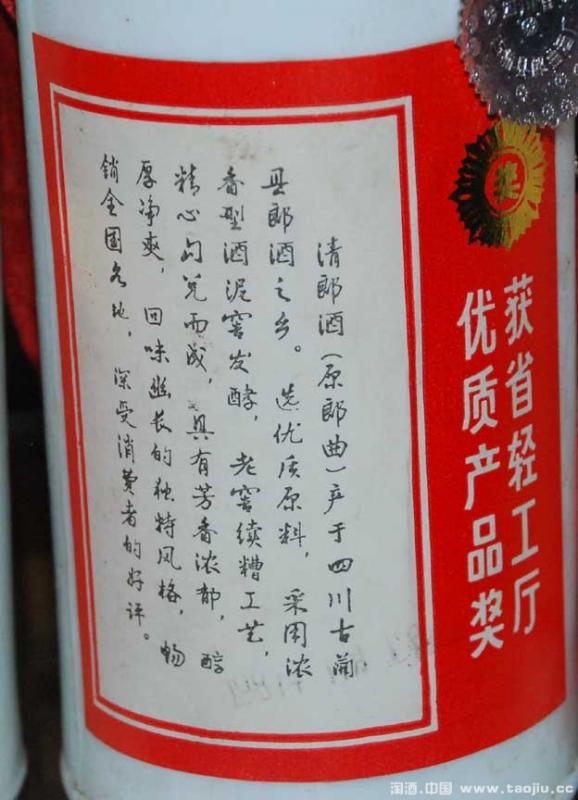 获省轻工厅
优质产品奖
奖
清郎酒(原郎曲)产于四川古蔺
县郎酒之乡。选优质原料,采用浓
香型酒泥窖发酵,老窖续糟工艺,
精心勾兑而成,具有芳香浓郁,醇
厚净爽,回味悠长的独特风格,畅
销全国各地,深受消费者的好评。
淘酒.中国 www.taojiu.cc